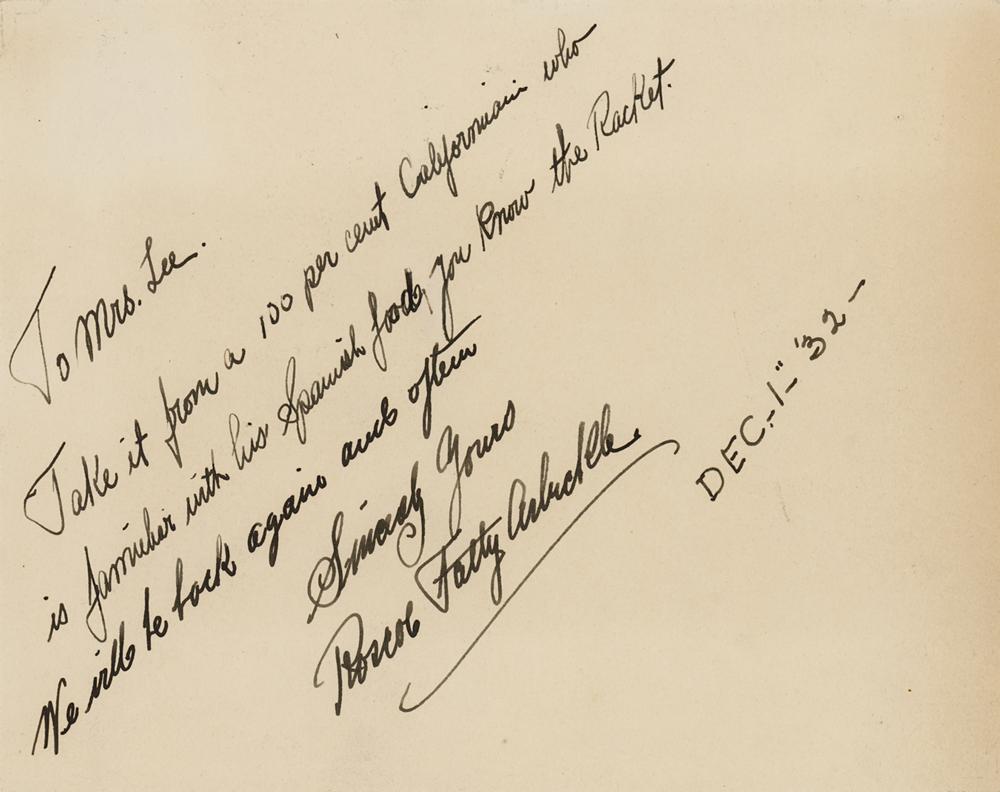 To Mrs. Lee.
Take it from a 100 per cent Californian who
is familiar with his Spanish food, you know the Racket.
We will be back again and often
Sincerely Yours
Roscoe Fatty Arbuckle.
DEC.-1-" '32-